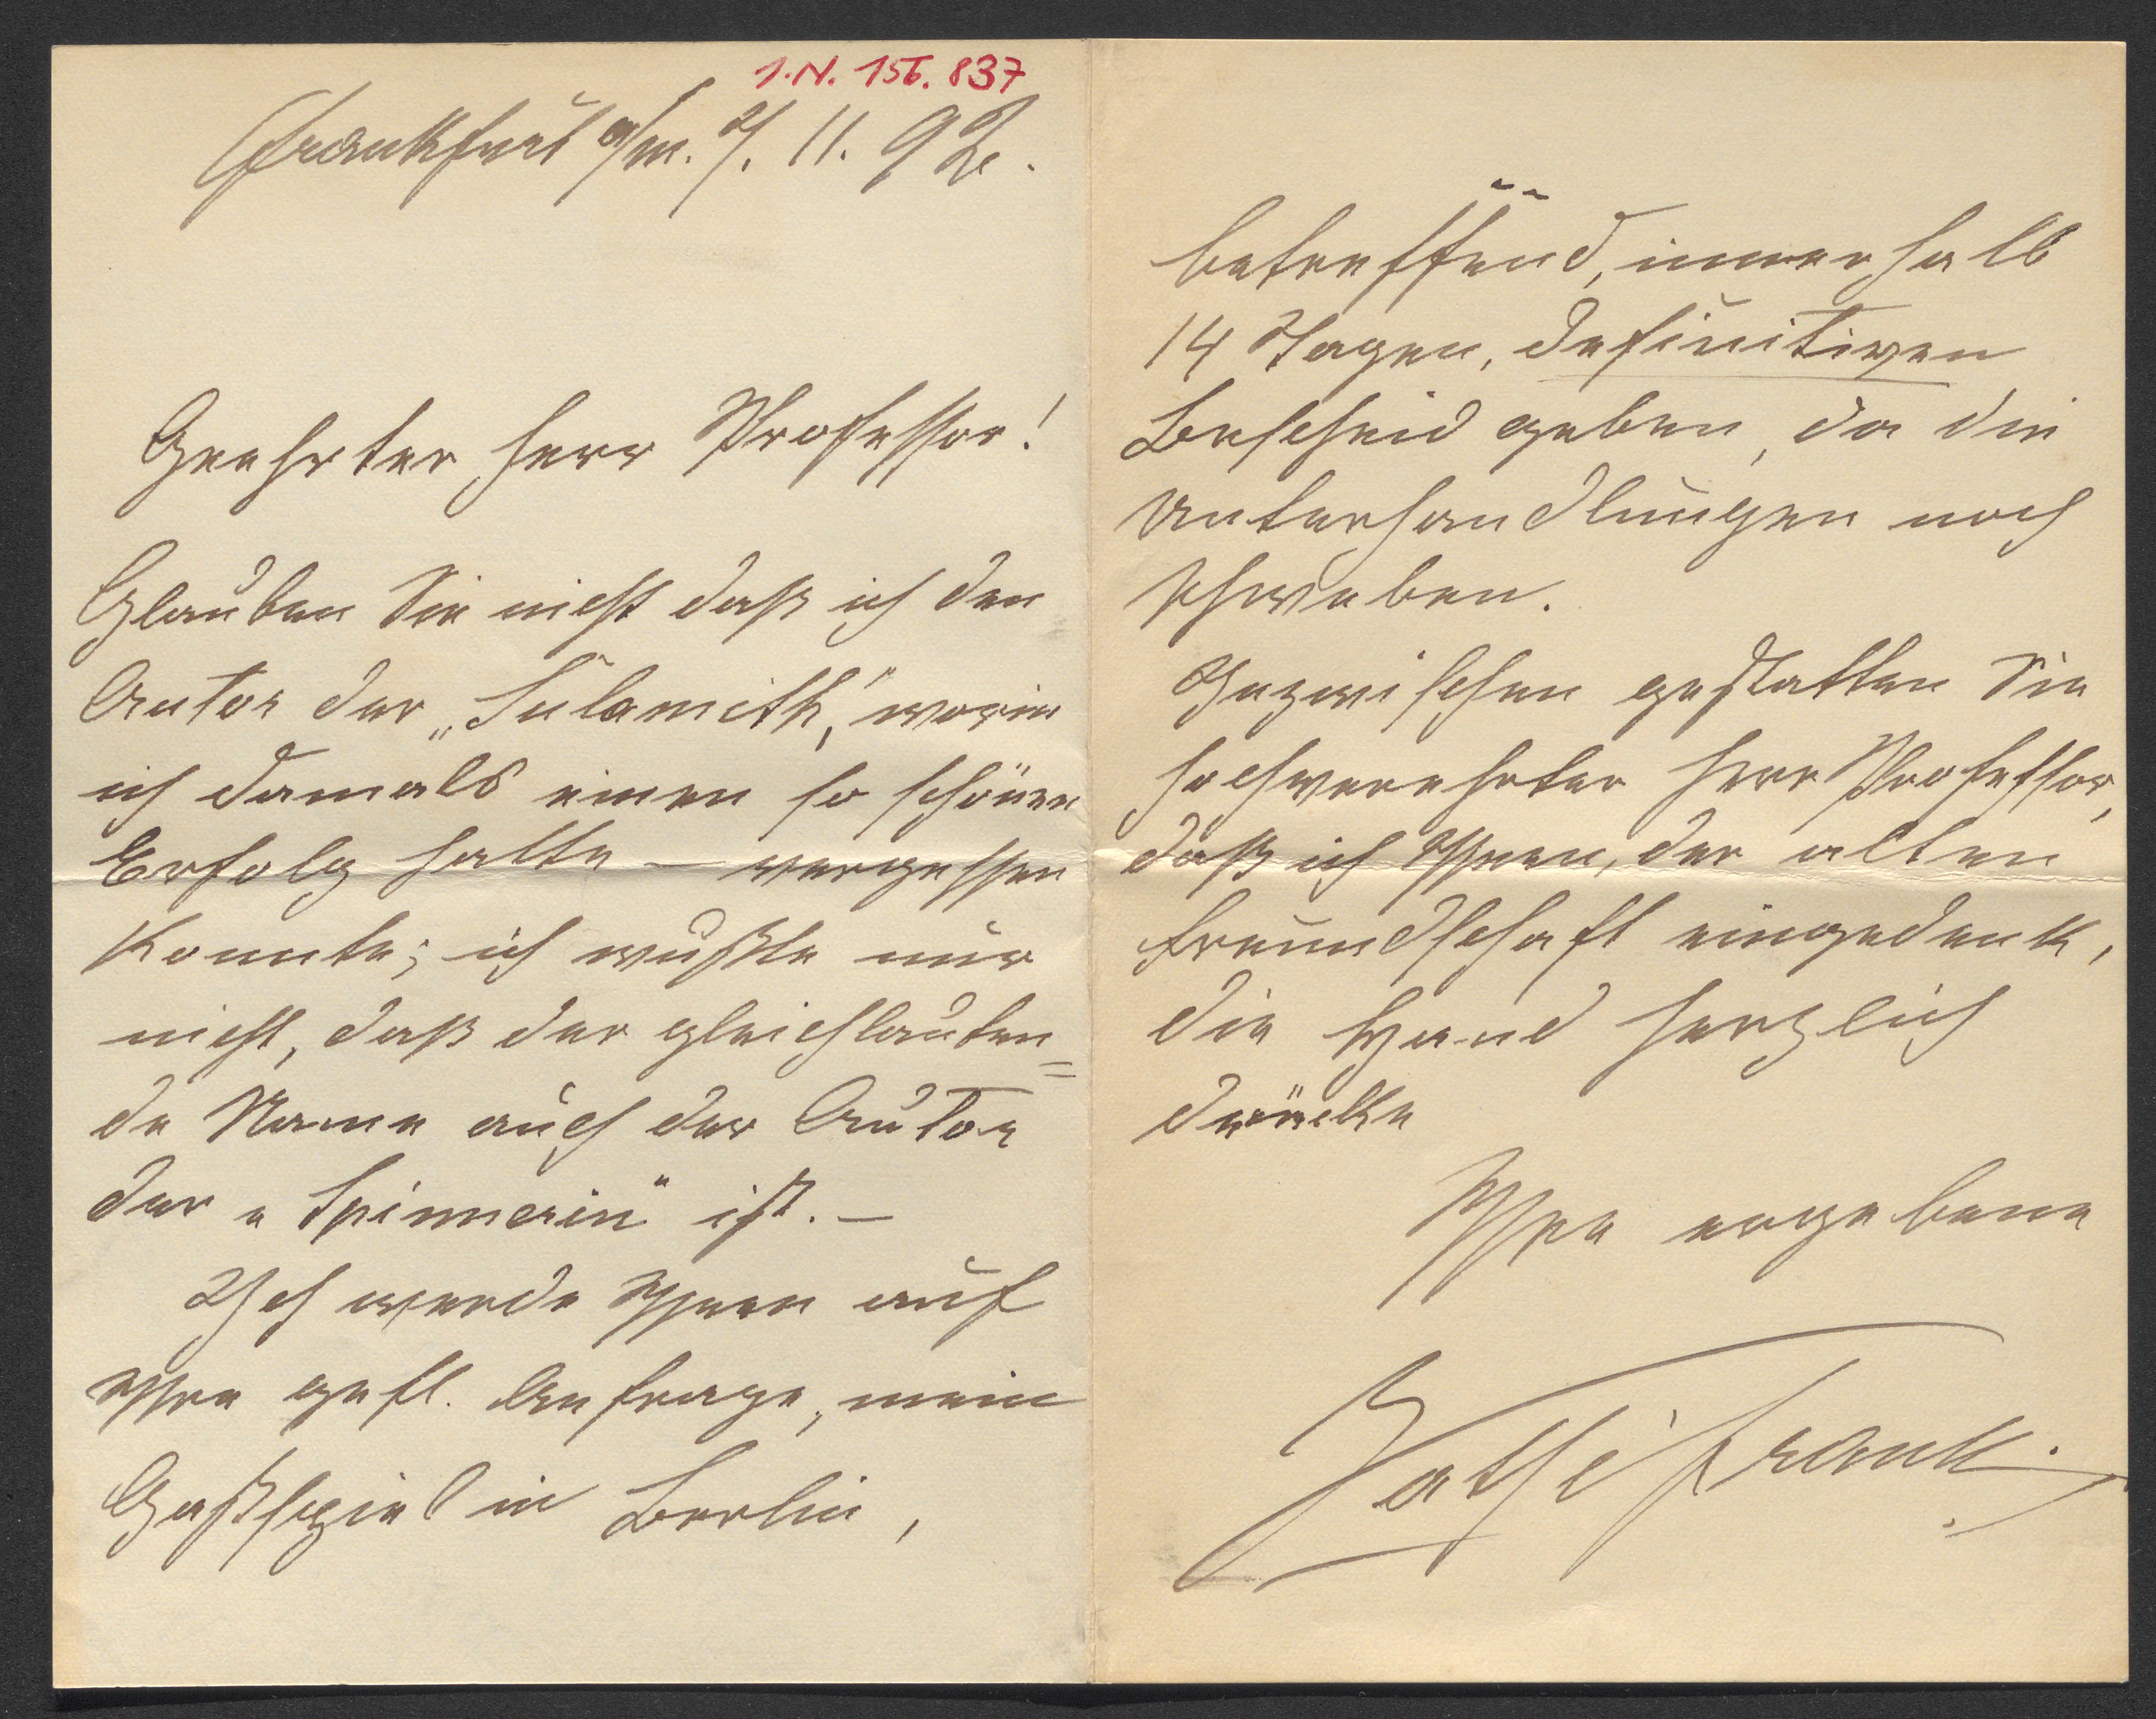 I.N. 156.837
Frankfurt a/m. 2/. 11. 92.
Geehrter Herr Professor!
Glauben Sie nicht daß ich den
Autor der „Sulamith“, worin
ich damals einen so schönen
Erfolg hatte – vergessen
konnte; ich wußte nur
nicht, daß der gleichlauten=
de Name auch der Autor
der „Spinnerin“ ist. –
Ich werde Ihnen auf
Ihre gefl. Anfrage, mein
Gastspiel in Berlin,
betreffend, innerhalb
14 Tagen, definitiven
Bescheid geben, da die
Unterhandlungen noch
schweben.
Inzwischen gestatten Sie
hochverehrter Herr Professor,
daß ich Ihnen, der alten
Freundschaft eingedenk,
die Hand herzlich
drücke
Ihre ergebene
Kathi Frank.